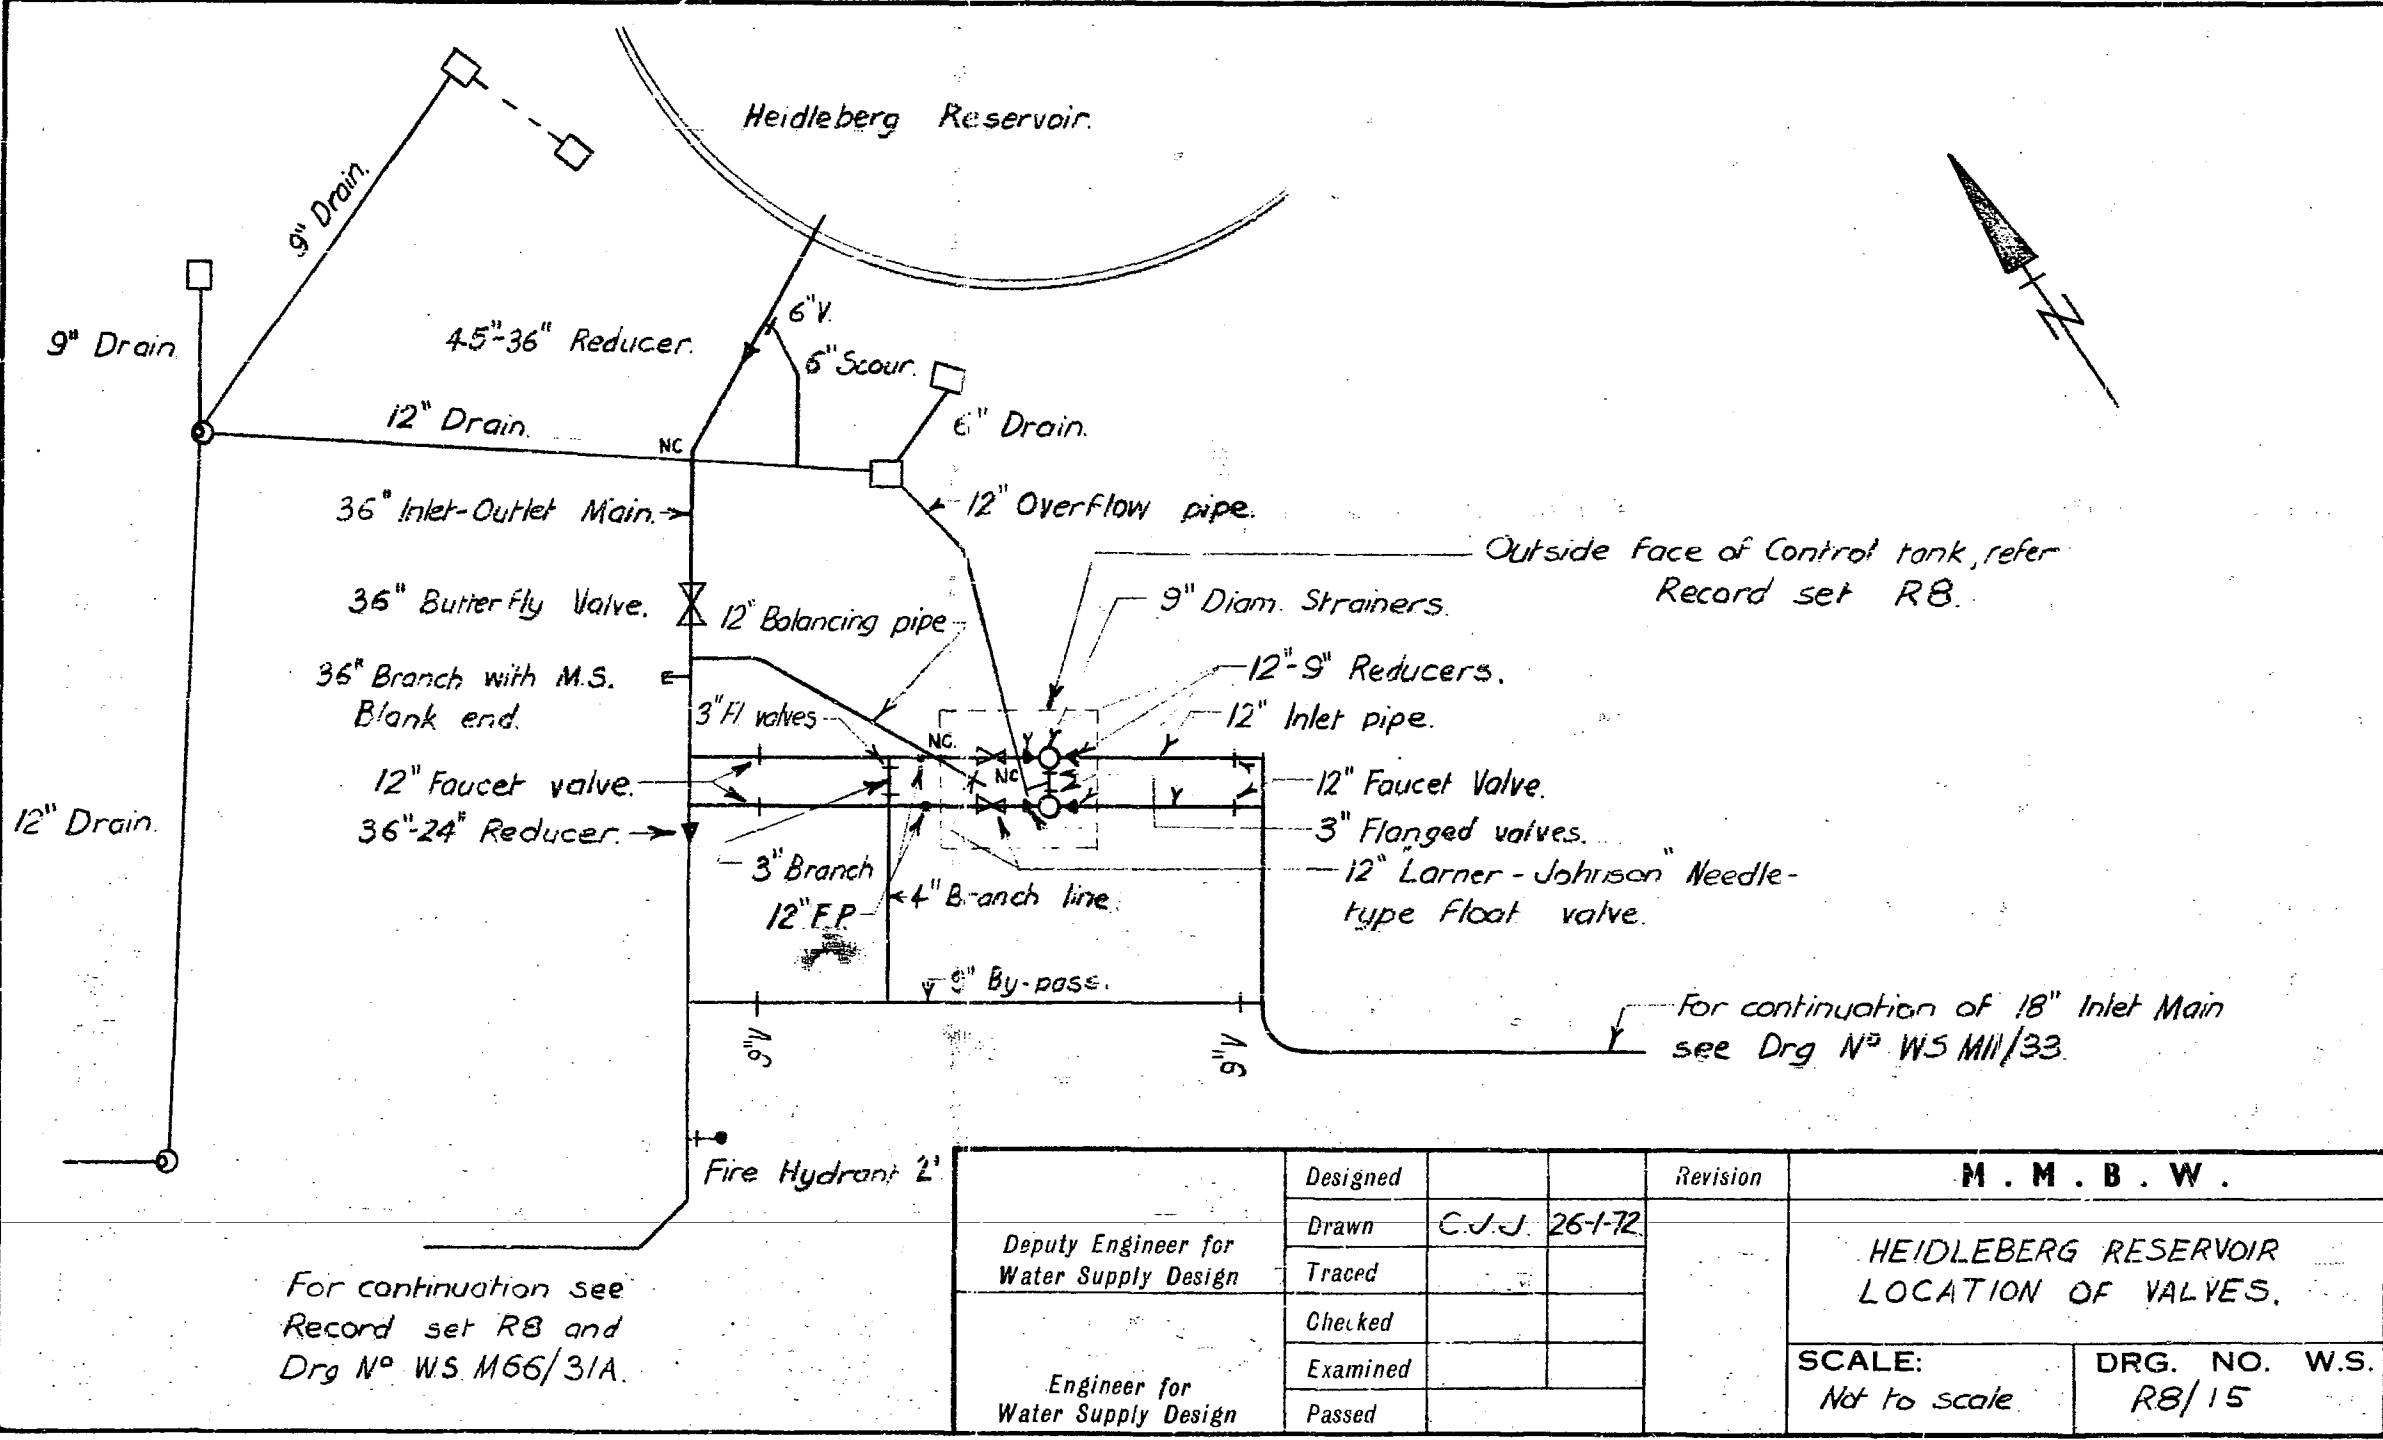 Heidleberg Reservoir.
9" Drain.
6"V.
45"-36" Reducer.
9" Drain
6" Scour.
12" Drain.
6" Drain.
NC
36" Inlet-Outlet Main.
12" Overflow pipe.
N
Outside face of Control tank, refer
Record set R8.
36" Butterfly Valve.
12" Balancing pipe
9" Diam. Strainers.
36" Branch with M.S.
Blank end.
12"-9" Reducers.
3" Fl valves
12" Inlet pipe.
NC.
NC
12" Faucet valve.
12" Faucet Valve.
12" Drain.
36"-24" Reducer.
3" Flanged valves.
3" Branch
12" "Larner-Johnson" Needle-
type Float valve.
4" Branch line
12" F.P.
9" By-pass.
9"V
9"V
For continuation of 18" Inlet Main
see Drg Nº WS M11/33.
Fire Hydrant 2'
For continuation see
Record set R8 and
Drg Nº W.S. M66/31A.
Deputy Engineer for
Water Supply Design
Engineer for
Water Supply Design
Designed
Drawn C.J.J. 26-1-72
Traced
Checked
Examined
Passed
Revision
M.M.B.W.
HEIDLEBERG RESERVOIR
LOCATION OF VALVES.
SCALE:
Not to scale
DRG. NO. W.S.
R8/15